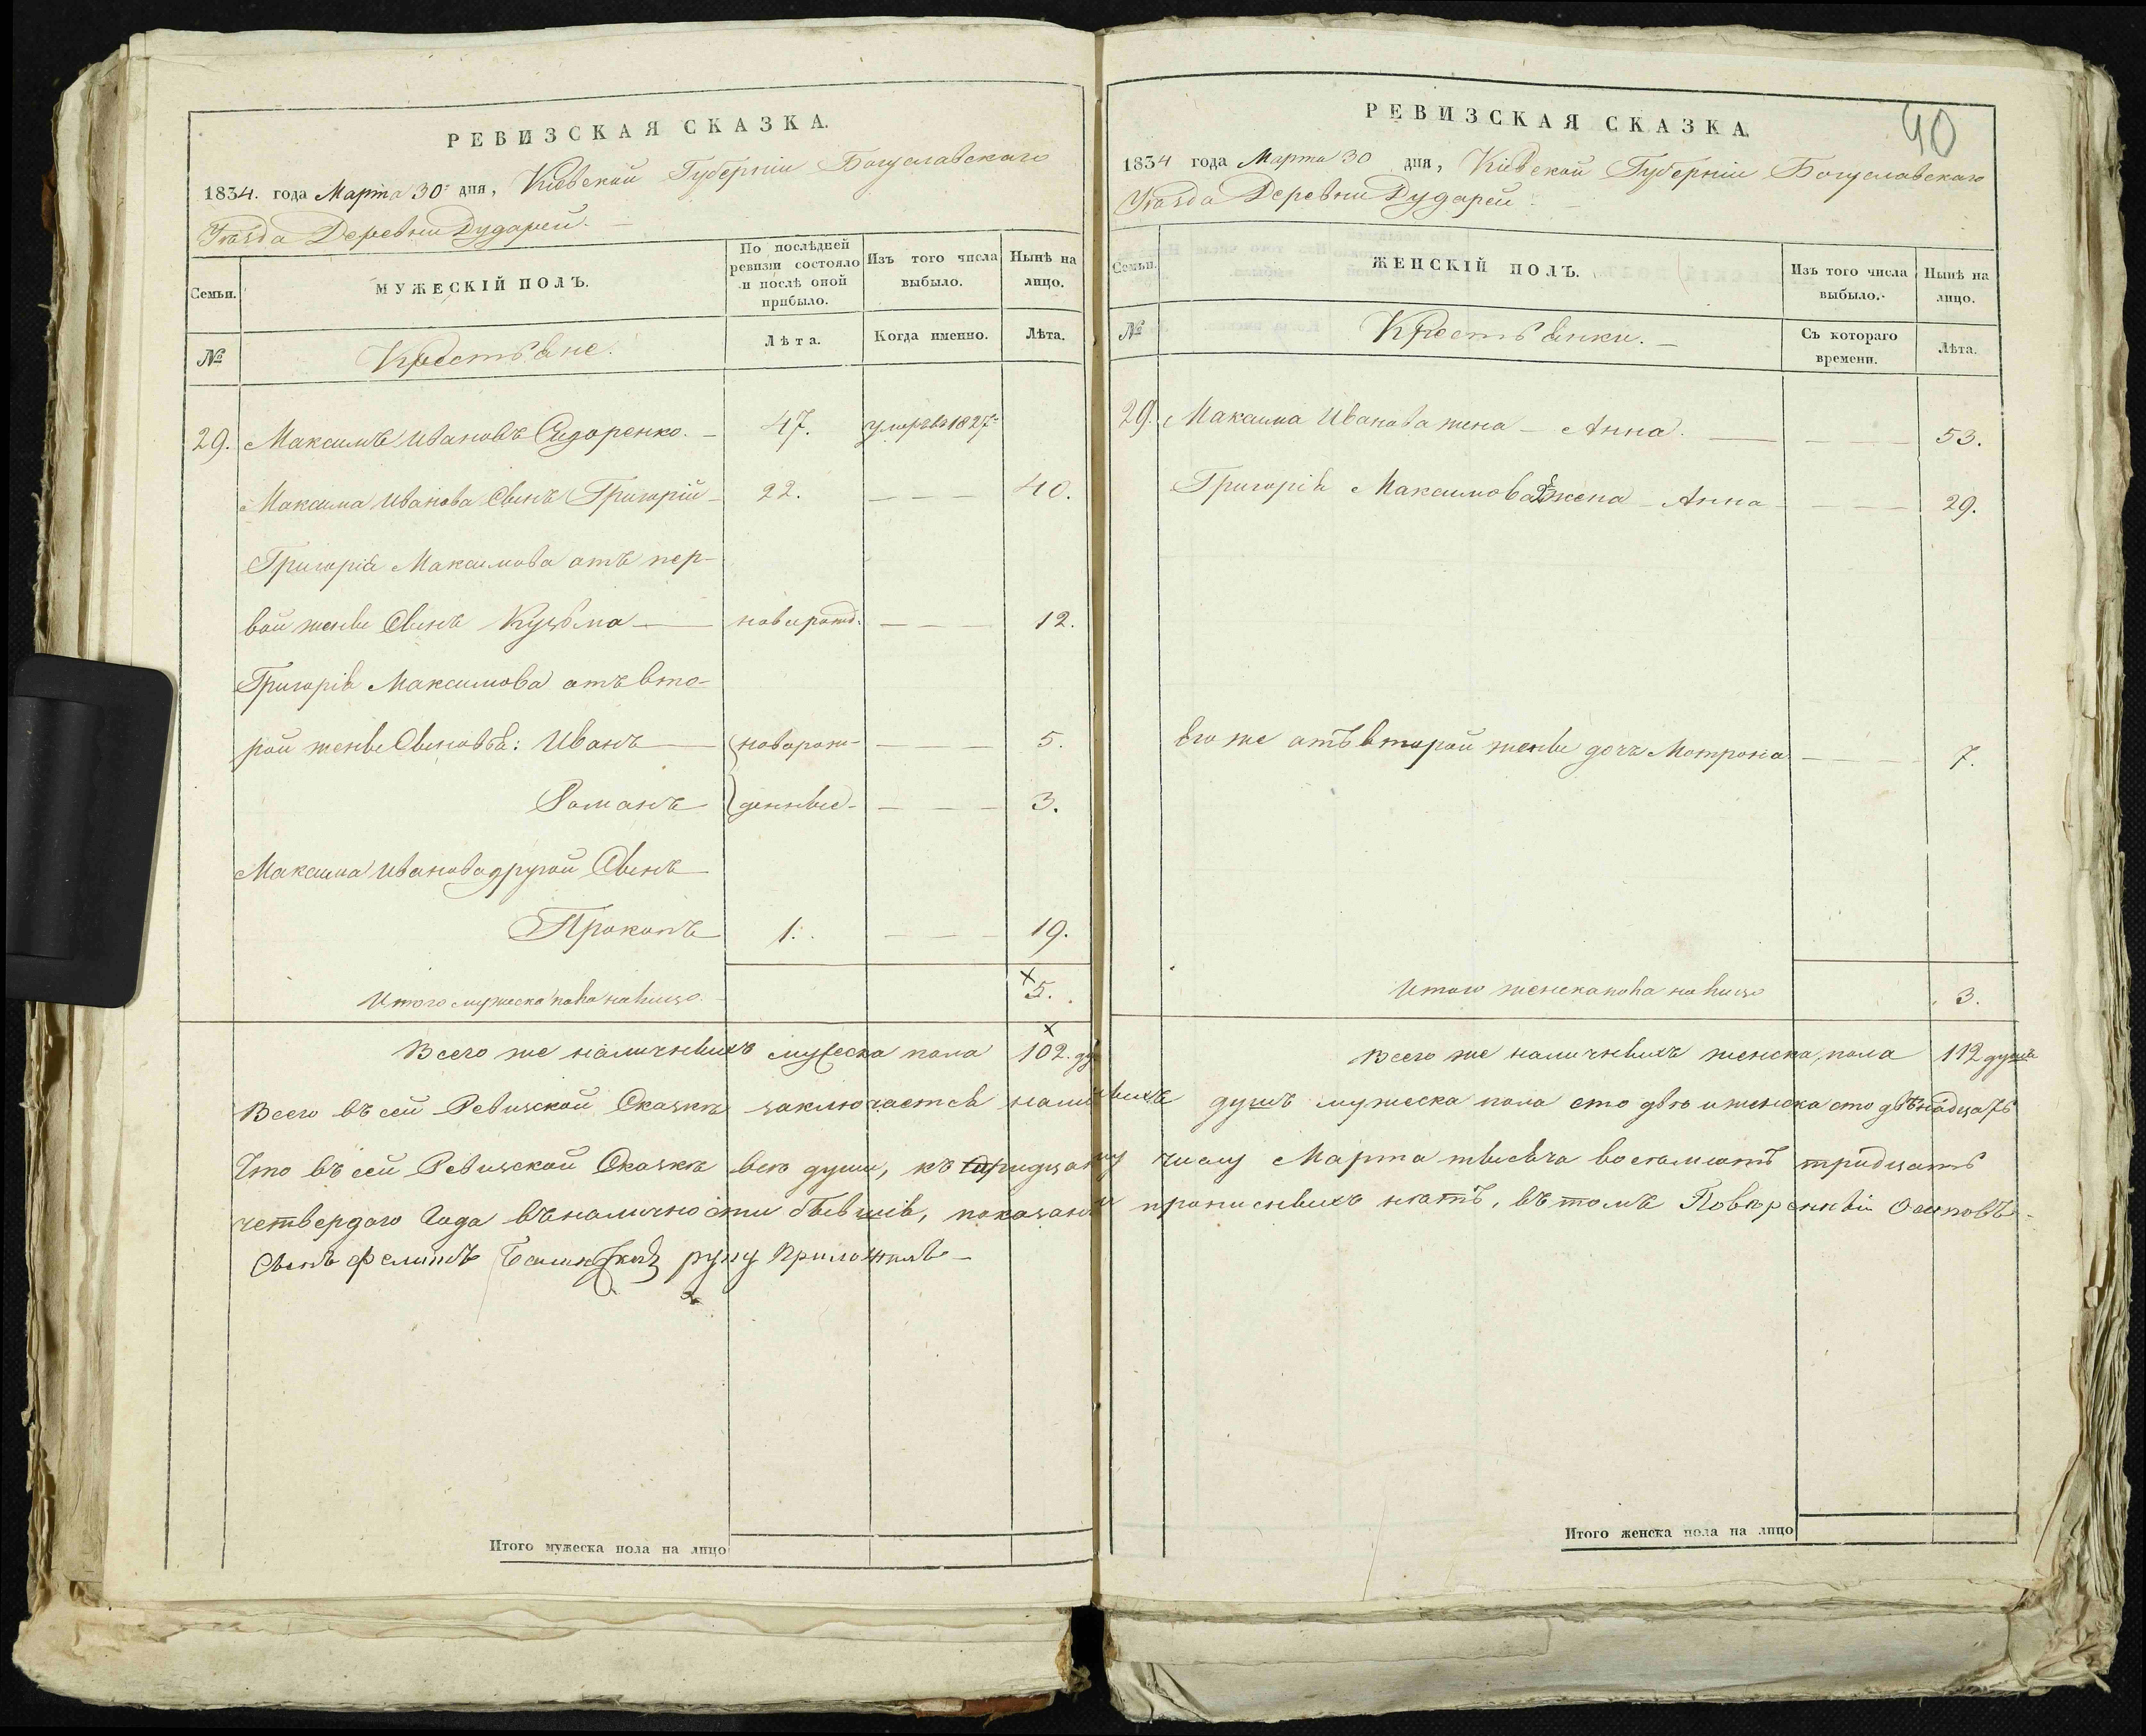 РЕВИЗСКАЯ СКАЗКА.
1834. года Марта 30 дня, Кіевской Губерніи Богуславскаго
Уѣзда Деревни Дударей.
Семьи. МУЖЕСКІЙ ПОЛЪ. По послѣдней ревизіи состояло и послѣ оной прибыло. Изъ того числа выбыло. Нынѣ на лицо.
№ Крестьяне. Лѣта. Когда именно. Лѣта.
29. Максимъ Ивановъ Сидоренко. 47. умеръ въ 1827
Максима Иванова Сынъ Григорій 22. 40.
Григорія Максимова отъ пер-
вой жены Сынъ Кузьма новорожд. 12.
Григорія Максимова отъ вто-
рой жены Сыновья: Иванъ новорож- 5.
Романъ денные 3.
Максима Иванова другой Сынъ
Прокопъ 1. 19.
Итого мужеска пола на лицо. 5.
Всего же наличныхъ мужеска пола 102. ду
РЕВИЗСКАЯ СКАЗКА.
40
1834 года Марта 30 дня, Кіевской Губерніи Богуславскаго
Уѣзда Деревни Дударей.
Семьи. ЖЕНСКІЙ ПОЛЪ. Изъ того числа выбыло. Нынѣ на лицо.
№ Крестьянки. Съ котораго времени. Лѣта.
29. Максима Иванова жена Анна. 53.
Григорія Максимова 2я жена Анна 29.
Его же отъ второй жены дочь Мотрона 7.
Итого женска пола на лицо 3.
Всего же наличныхъ женска пола 112 душъ
Всего въ сей Ревизской Сказкѣ заключается наличныхъ душъ мужеска пола сто двѣ и женска сто двѣнадцать
Что въ сей Ревизской Сказкѣ всѣ души, къ тридцатому числу Марта тысяча восемьсотъ тридцать
четвердого Года въ наличности бывшія, показаны и прописныхъ нѣтъ, въ томъ Повѣренный Осиповъ
Сынъ Феликсъ руку Приложилъ
Итого мужеска пола на лицо
Итого женска пола на лицо